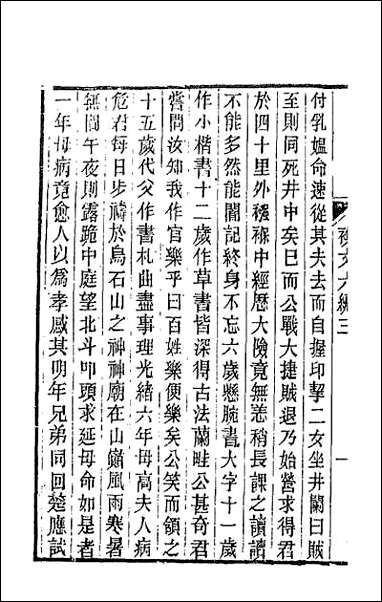 付乳媼命速從其夫去而自握印挈二女坐井闌曰賊
至則同死井中矣已而公戰大捷賊退乃始營求得君
於四十里外襁褓中經歷大險竟無恙稍長課之讀讀
不能多然能闇記終身不忘六歲懸腕書大字十一歲
作小楷書十二歲作草書皆深得古法蘭畦公甚奇君
嘗問汝知我作官樂乎曰百姓樂便樂矣公笑而頷之
十五歲代父作書札曲盡事理光緒六年母高夫人病
危君每日步禱於烏石山之神神廟在山巓風雨寒暑
無間午夜則露跪中庭望北斗叩頭求延母命如是者
一年母病竟愈人以爲孝感其明年兄弟同回楚應試
雜文六編三
一